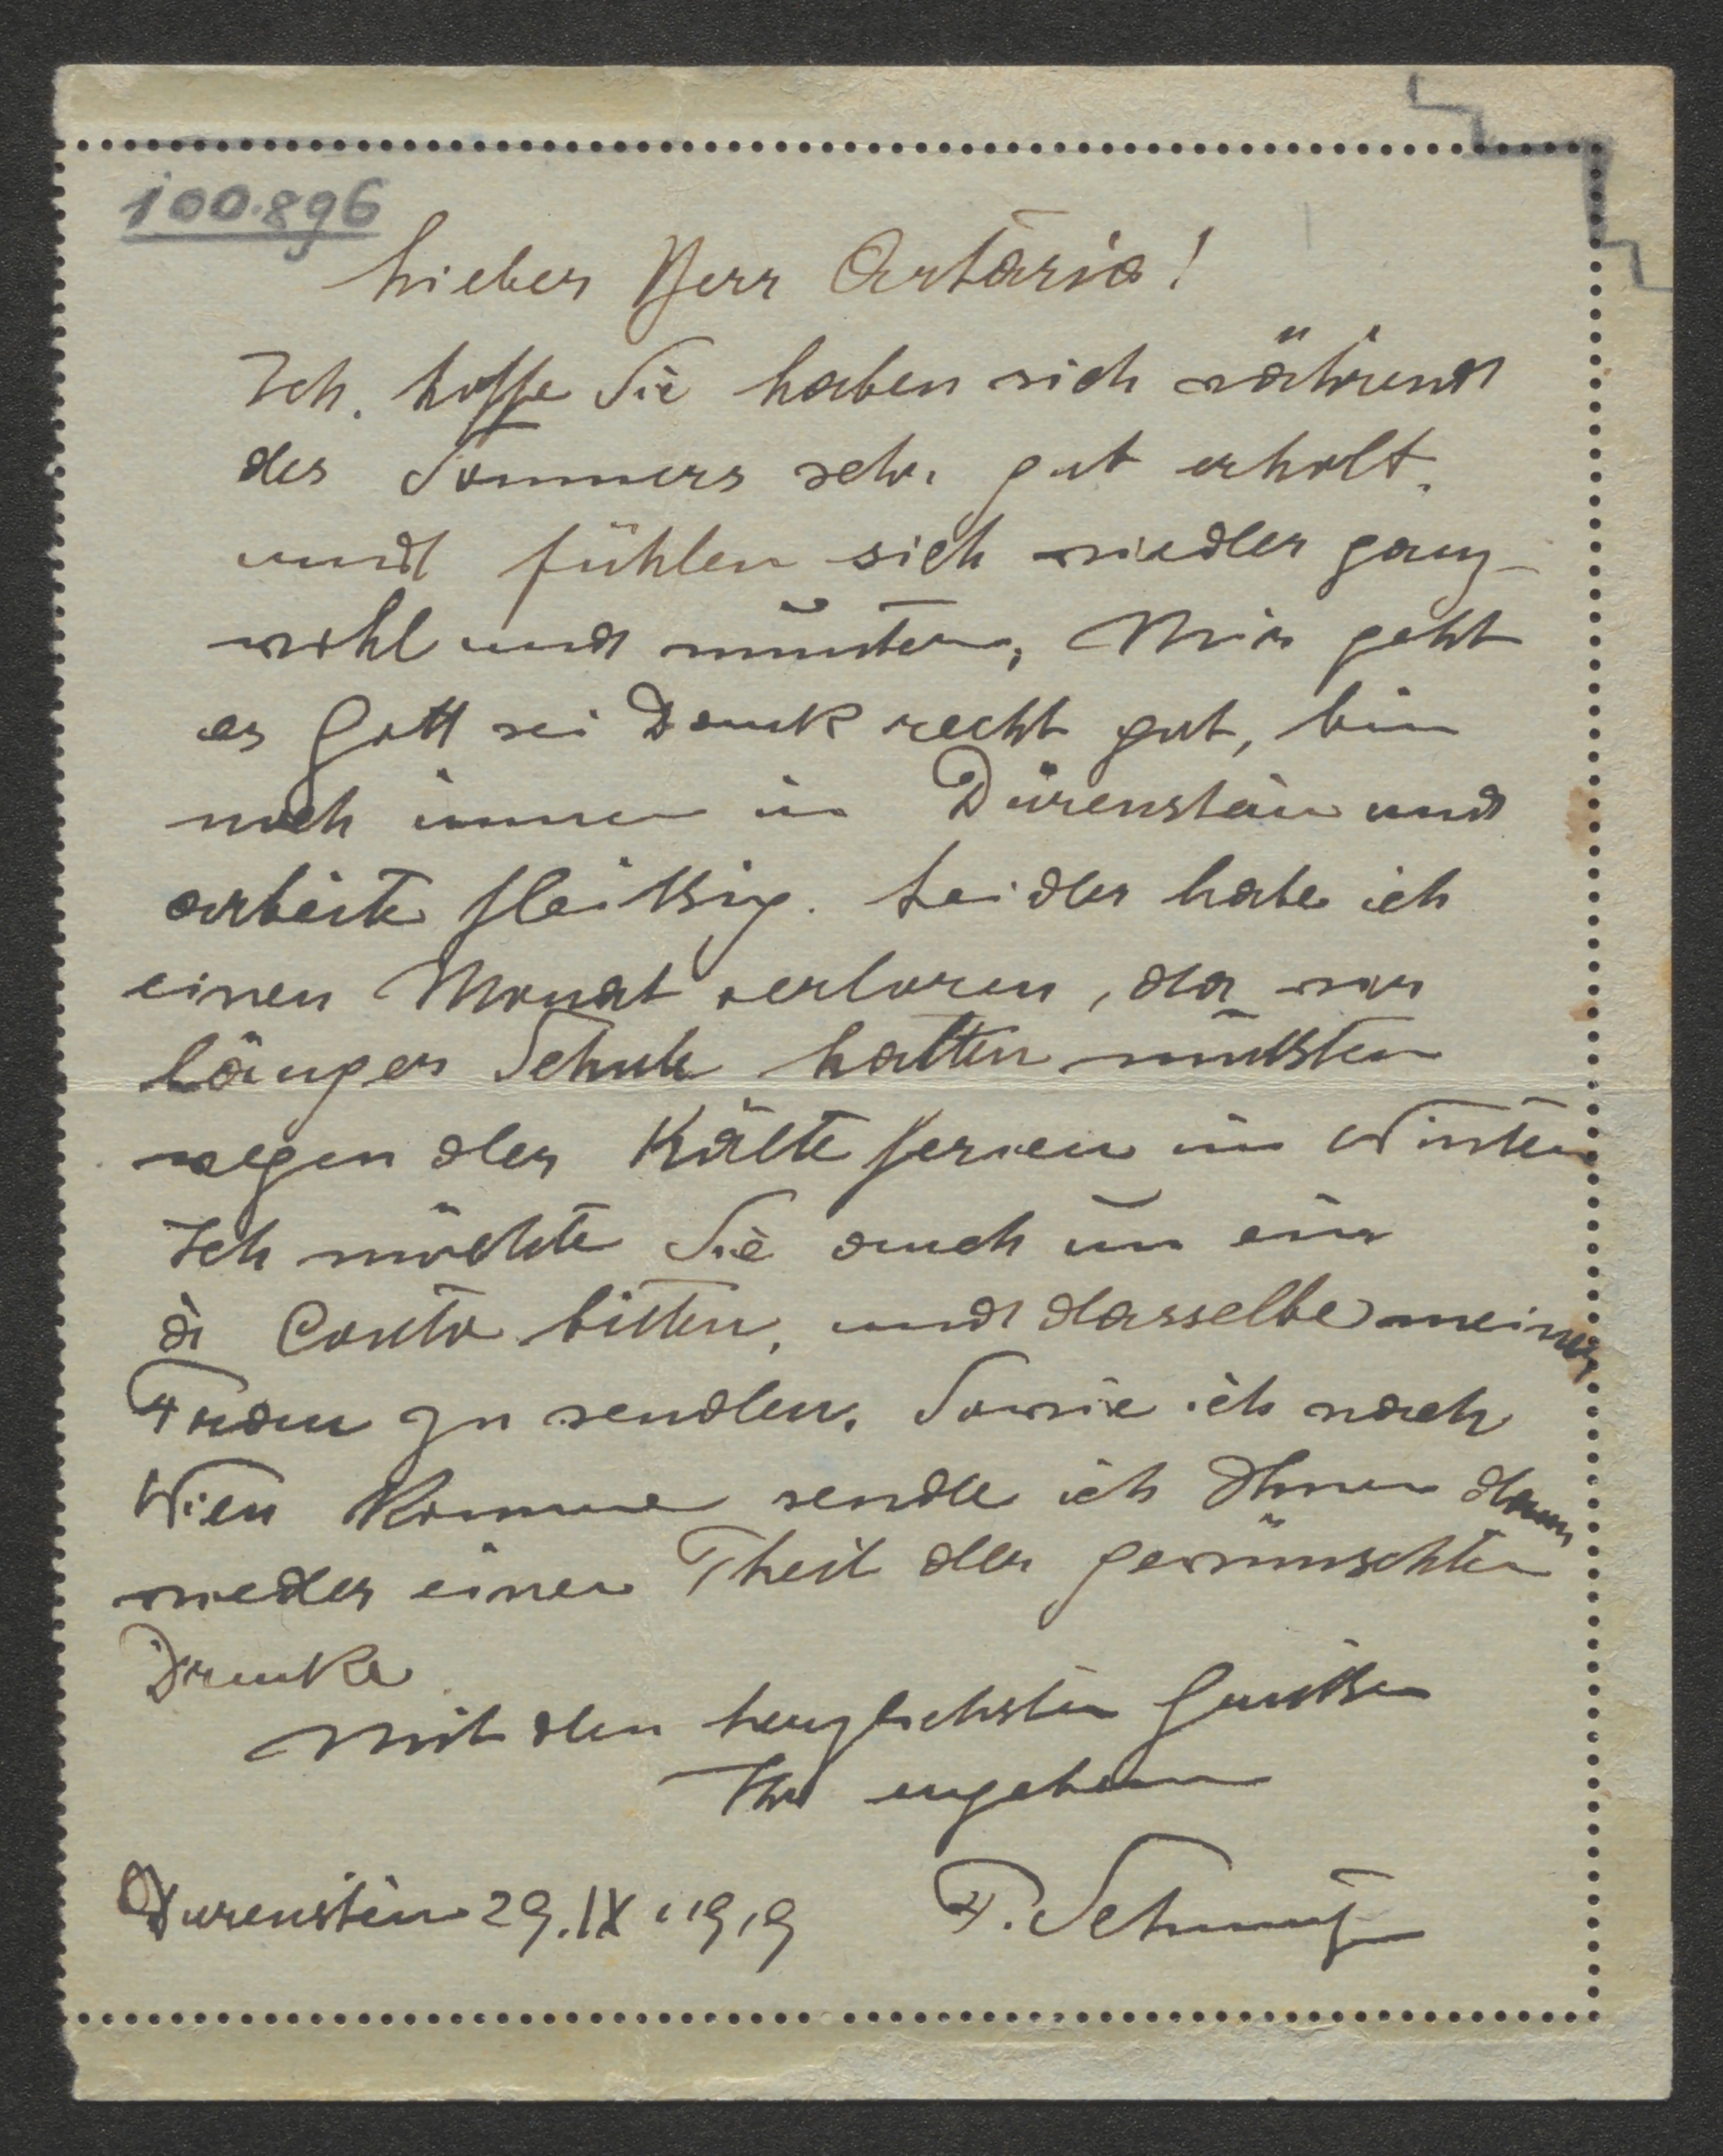 100.896
Lieber Herr Artaria!
Ich hoffe Sie haben sich während
des Sommers sehr gut erholt.
und fühlen sich wieder ganz
wohl und munter, Mir geht
es Gott sei Dank recht gut, bin
noch immer in Dürenstein und
arbeite fleißig. Leider habe ich
einen Monat verloren, da wir
länger Schule halten mußten
wegen der Kälteferien im Winter
Ich möchte Sie auch um ein
à Conto bitten, und dasselbe meiner
Frau zu senden. Sowie ich nach
Wien komme sende ich Ihnen dann
wieder einen Theil der gewünschten
Drucke
Mit den herzlichsten Grüßen
Ihr ergebener
Dürenstein 29.IX.1919 F. Schmutzer